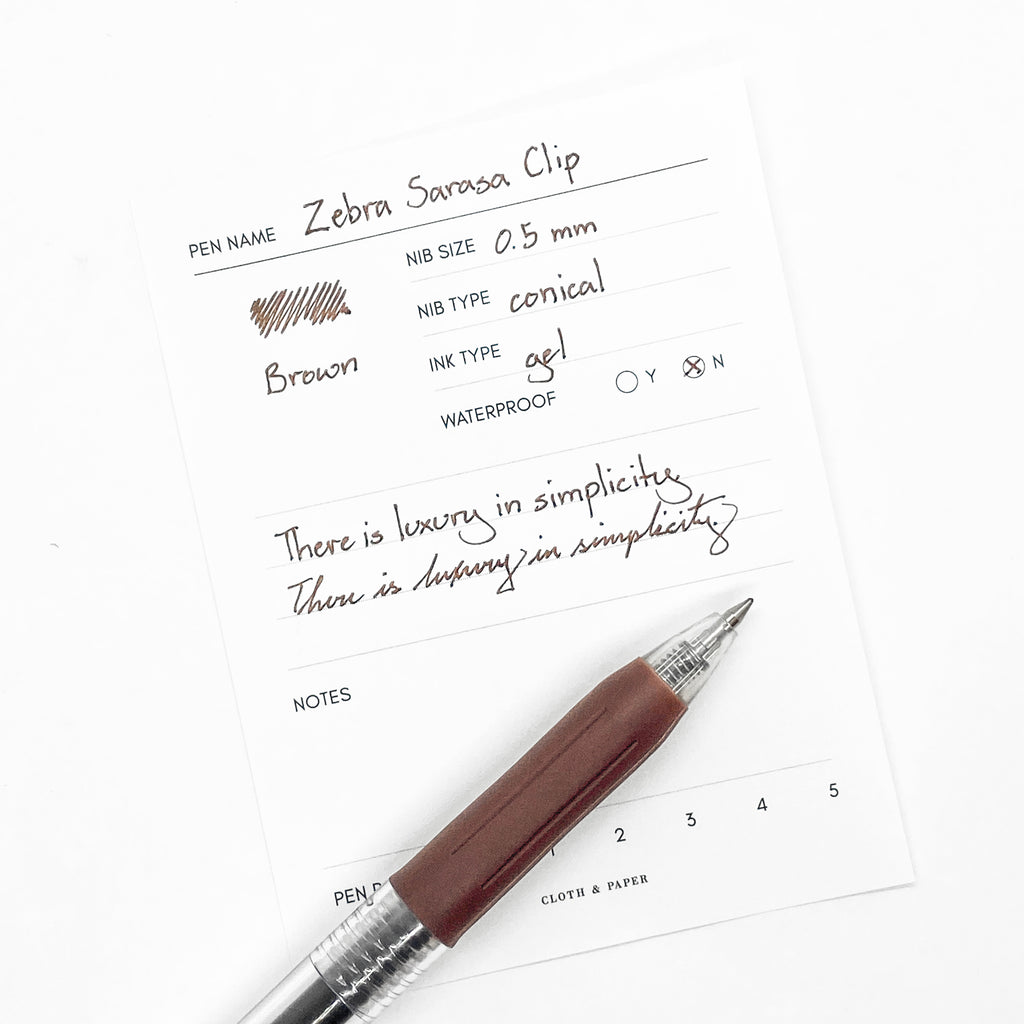 PEN NAME Zebra Sarasa Clip
NIB SIZE 0.5 mm
NIB TYPE conical
Brown
INK TYPE gel
WATERPROOF Y N
There is luxury in simplicity.
There is luxury in simplicity.
NOTES
PEN 1 2 3 4 5
CLOTH & PAPER